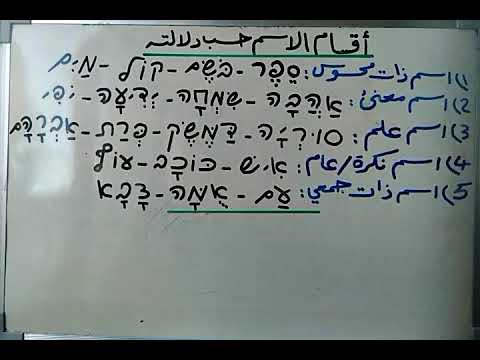 أقسام الاسم حسب دلالته
1) اسم ذات محسوس: סֵפֶר - בֹּשֶׂם - קוֹל - מַיִם
2) اسم معنى: אַהֲבָה - שִׂמְחָה - יְדִיעָה - יֹפִי
3) اسم علم: סוּרְיָה - דַמֶשֶׂק - פְּרַת - אַבְרָהָם
4) اسم نكرة/عام: אִישׁ - כּוֹכָב - עוֹף
5) اسم ذات جمعي: עַם - אֻמָה - צָבָא